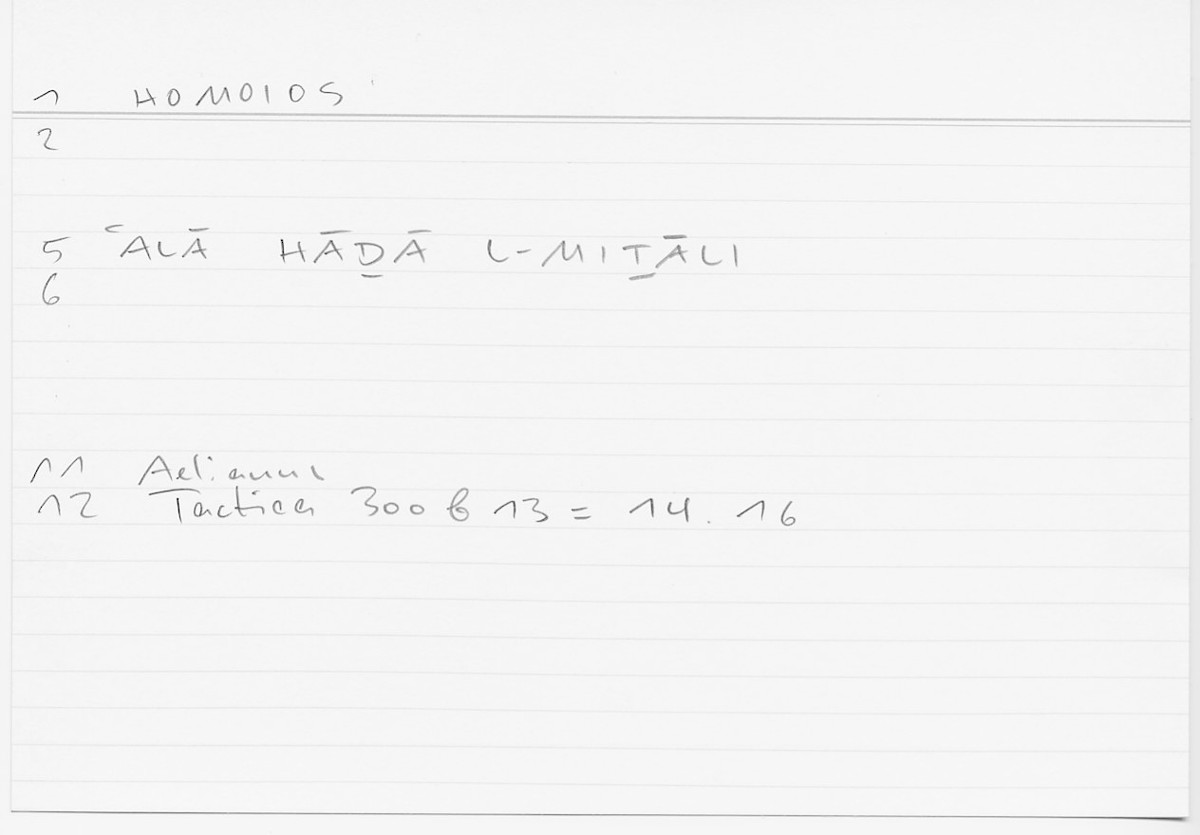 1 HOMOIOS
2
5 ʿALĀ HĀḎĀ L-MIṮĀLI
6
11 Aelianus
12 Tactica 300 b 13 = 14. 16